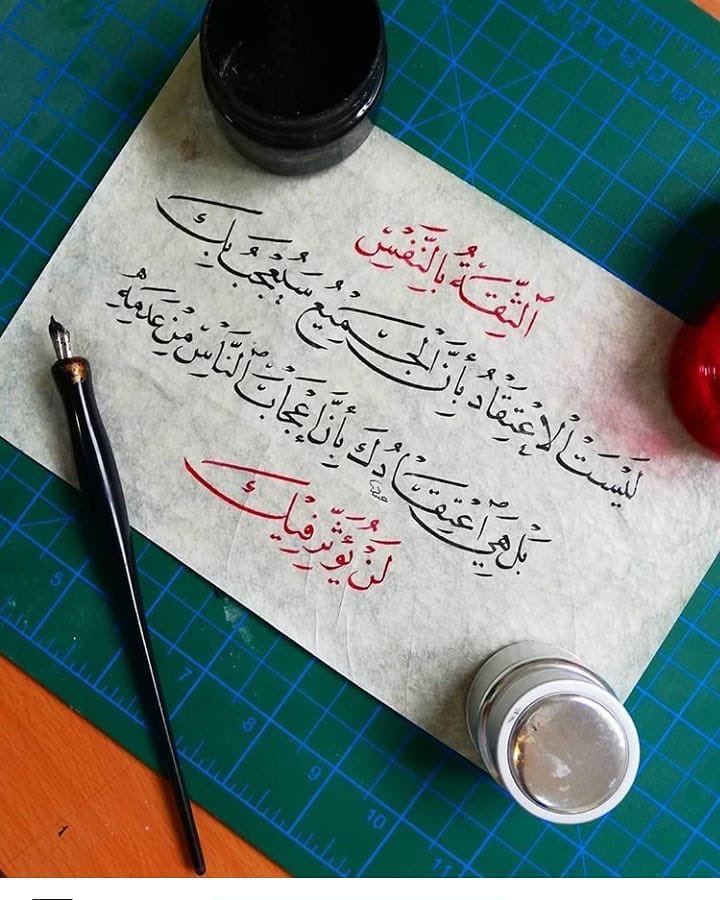 اَلثِّقَةُ بِالنَّفْسِ
لَيْسَتْ الْاِعْتِقَادُ بِأَنَّ الْجَمِيْعُ سَيُعْجَبُ بِكَ
بَلْ هِيَ اَعْتِقَادُكَ بِأَنَّ إِعْجَابَ النَّاسِ مِنْ عَدَمِهِ
لَنْ يُؤَثِّرَ فِيْكَ
5
7
8
9
10
11